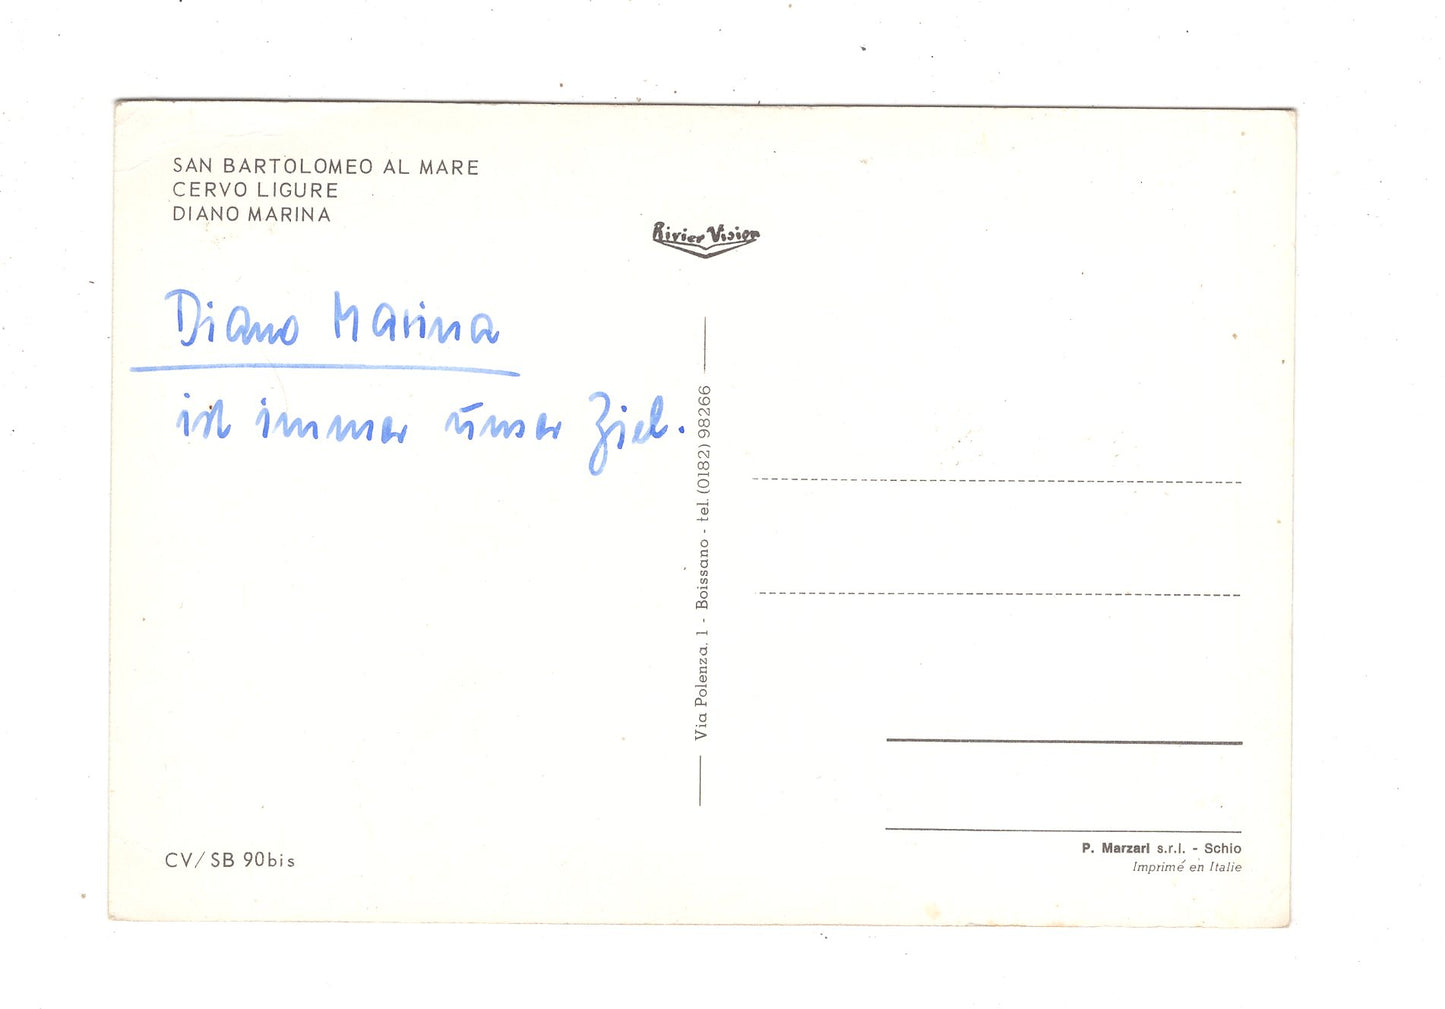 SAN BARTOLOMEO AL MARE
CERVO LIGURE
DIANO MARINA
Rivier Vision
Diano Marina
ist immer unser Ziel.
Via Polenza, 1 - Boissano - tel. (0182) 98266
CV/SB 90bis
P. Marzari s.r.l. - Schio
Imprimé en Italie